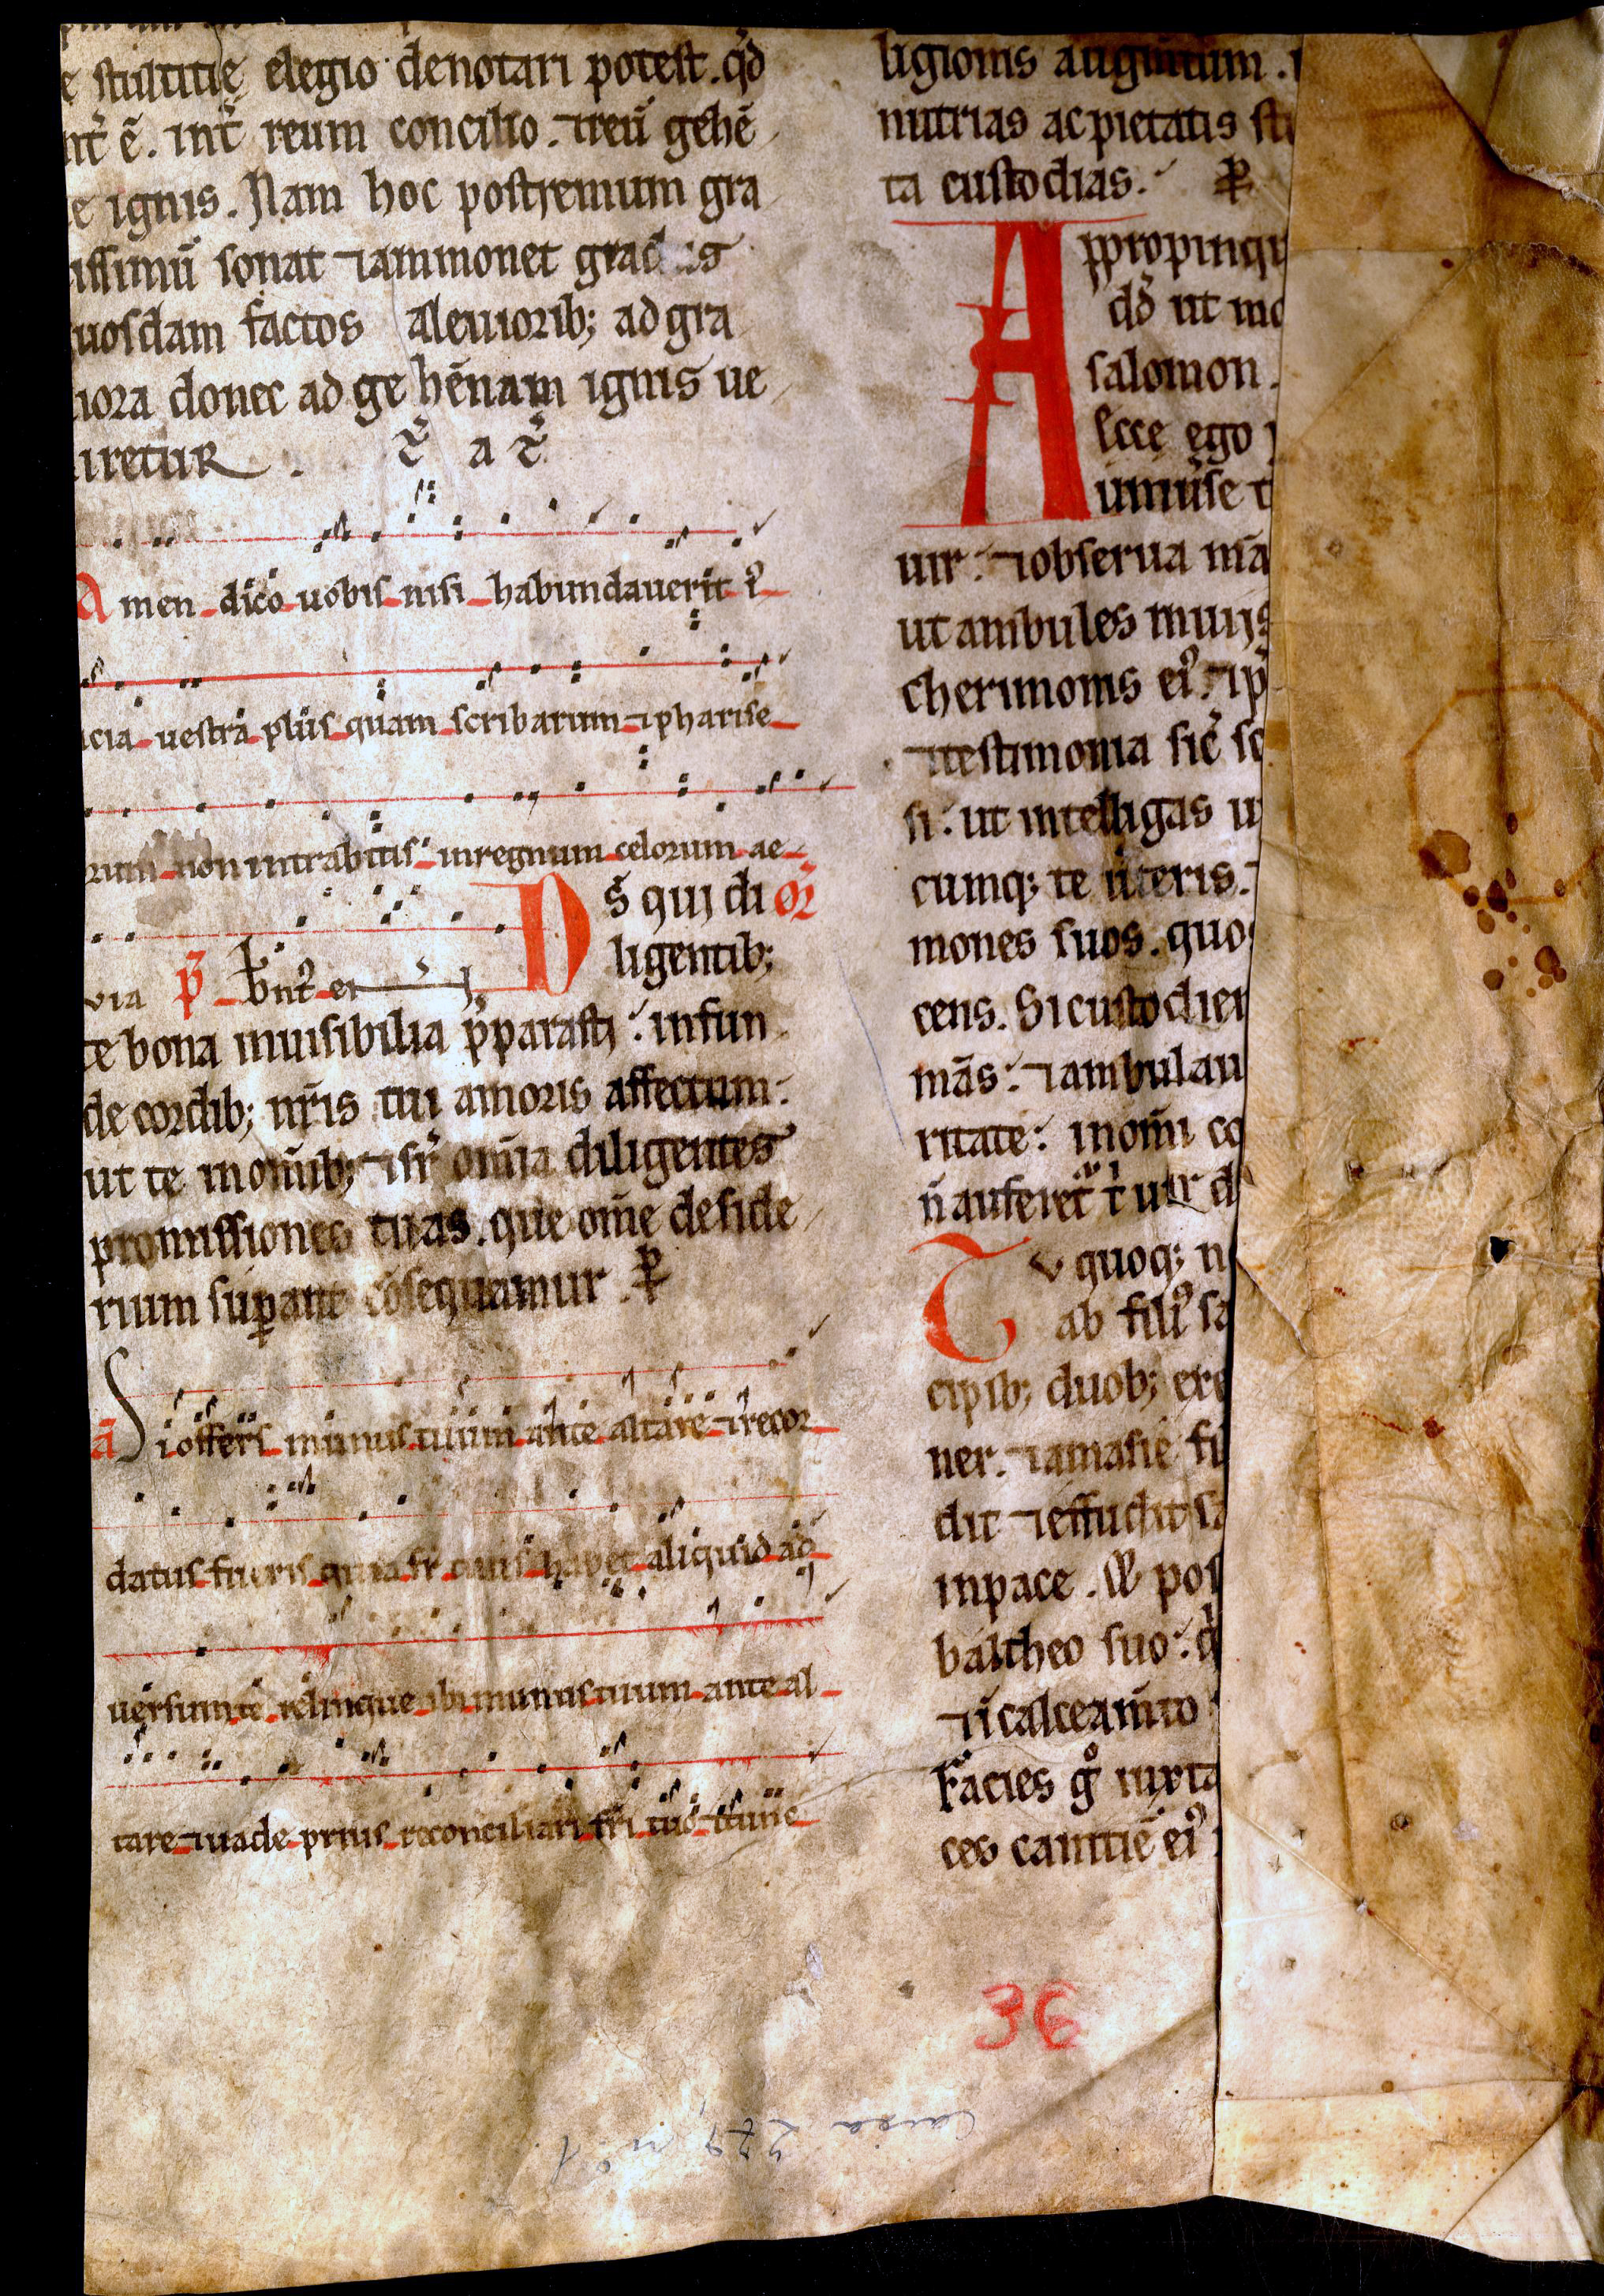 e stultitię elegio denotari potest. qd̕
nt̕ ē. int̕ reum concilio. ⁊reū gehē
e ignis. Nam hoc postremum gra
issimū sonat ⁊ammonet gradus
uosdam factos aleuiorib; ad gra
iora donec ad ge hēnam ignis ue
iretur.
Amen dico uobis nisi habundauerit i᷒
icia uestra plus quam scribarum ⁊pharise
orum non intrabitis in regnum celorum ae
via p̄
D s̄ qui di or̄
ligentib;
te bona inuisibilia p̄parasti: infun
de cordib; nr̄is tui amoris affectum:
ut te in om̄ib; ⁊sr̄ om̄ia diligentes
promissiones tuas. que om̄e deside
rium suꝑant cōsequamur. ꝑ
ā Si offers munus tuum ante altare ⁊recor
datus fueris quia fr̄ tuus habet aliquid ad
uersum te relinque ibi munus tuum ante al
tare ⁊uade prius reconciliari fr̄i tuo ⁊tunc
ligionis augm̄tum.
nutrias ac pietatis st
ta custodias. ꝑ
Appropinqu
dd̕ ut mo
salomon.
Ecce ego
uniuꝰse t
uir: ⁊obserua mā
ut ambules in uijs
cherimonis eiꝰ. ⁊ip̄
⁊testimonia sic̄ sc
si: ut intelligas u
cumq; te uteris.
mones suos. quos
cens. Si custodier
mās: ⁊ambulau
ritate: in om̄i co
n̄ auferet̕ t̕ uir d
Tu quoq; n
ab filiꝰ sa
cipib; duob; exe
ner. ⁊amasie fi
dit ⁊effudit sa
in pace. ⁊ pos
baltheo suo: q
⁊i calceam̄to
Facies g̊ iuxta
ces canitiē eiꝰ
36